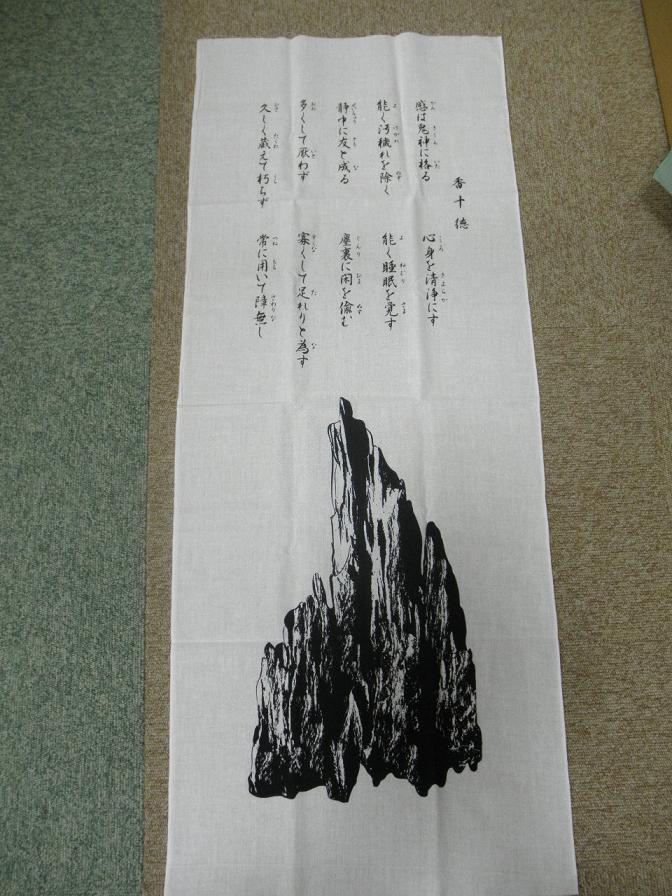 香十徳
感は鬼神に格る
心身を清浄にす
能く汚穢れを除く
能く睡眠を覚す
静中に友と成る
塵裏に閑を偸む
多くして厭わず
寡くして足れりと為す
久しく蔵えて朽ちず
常に用いて障無し